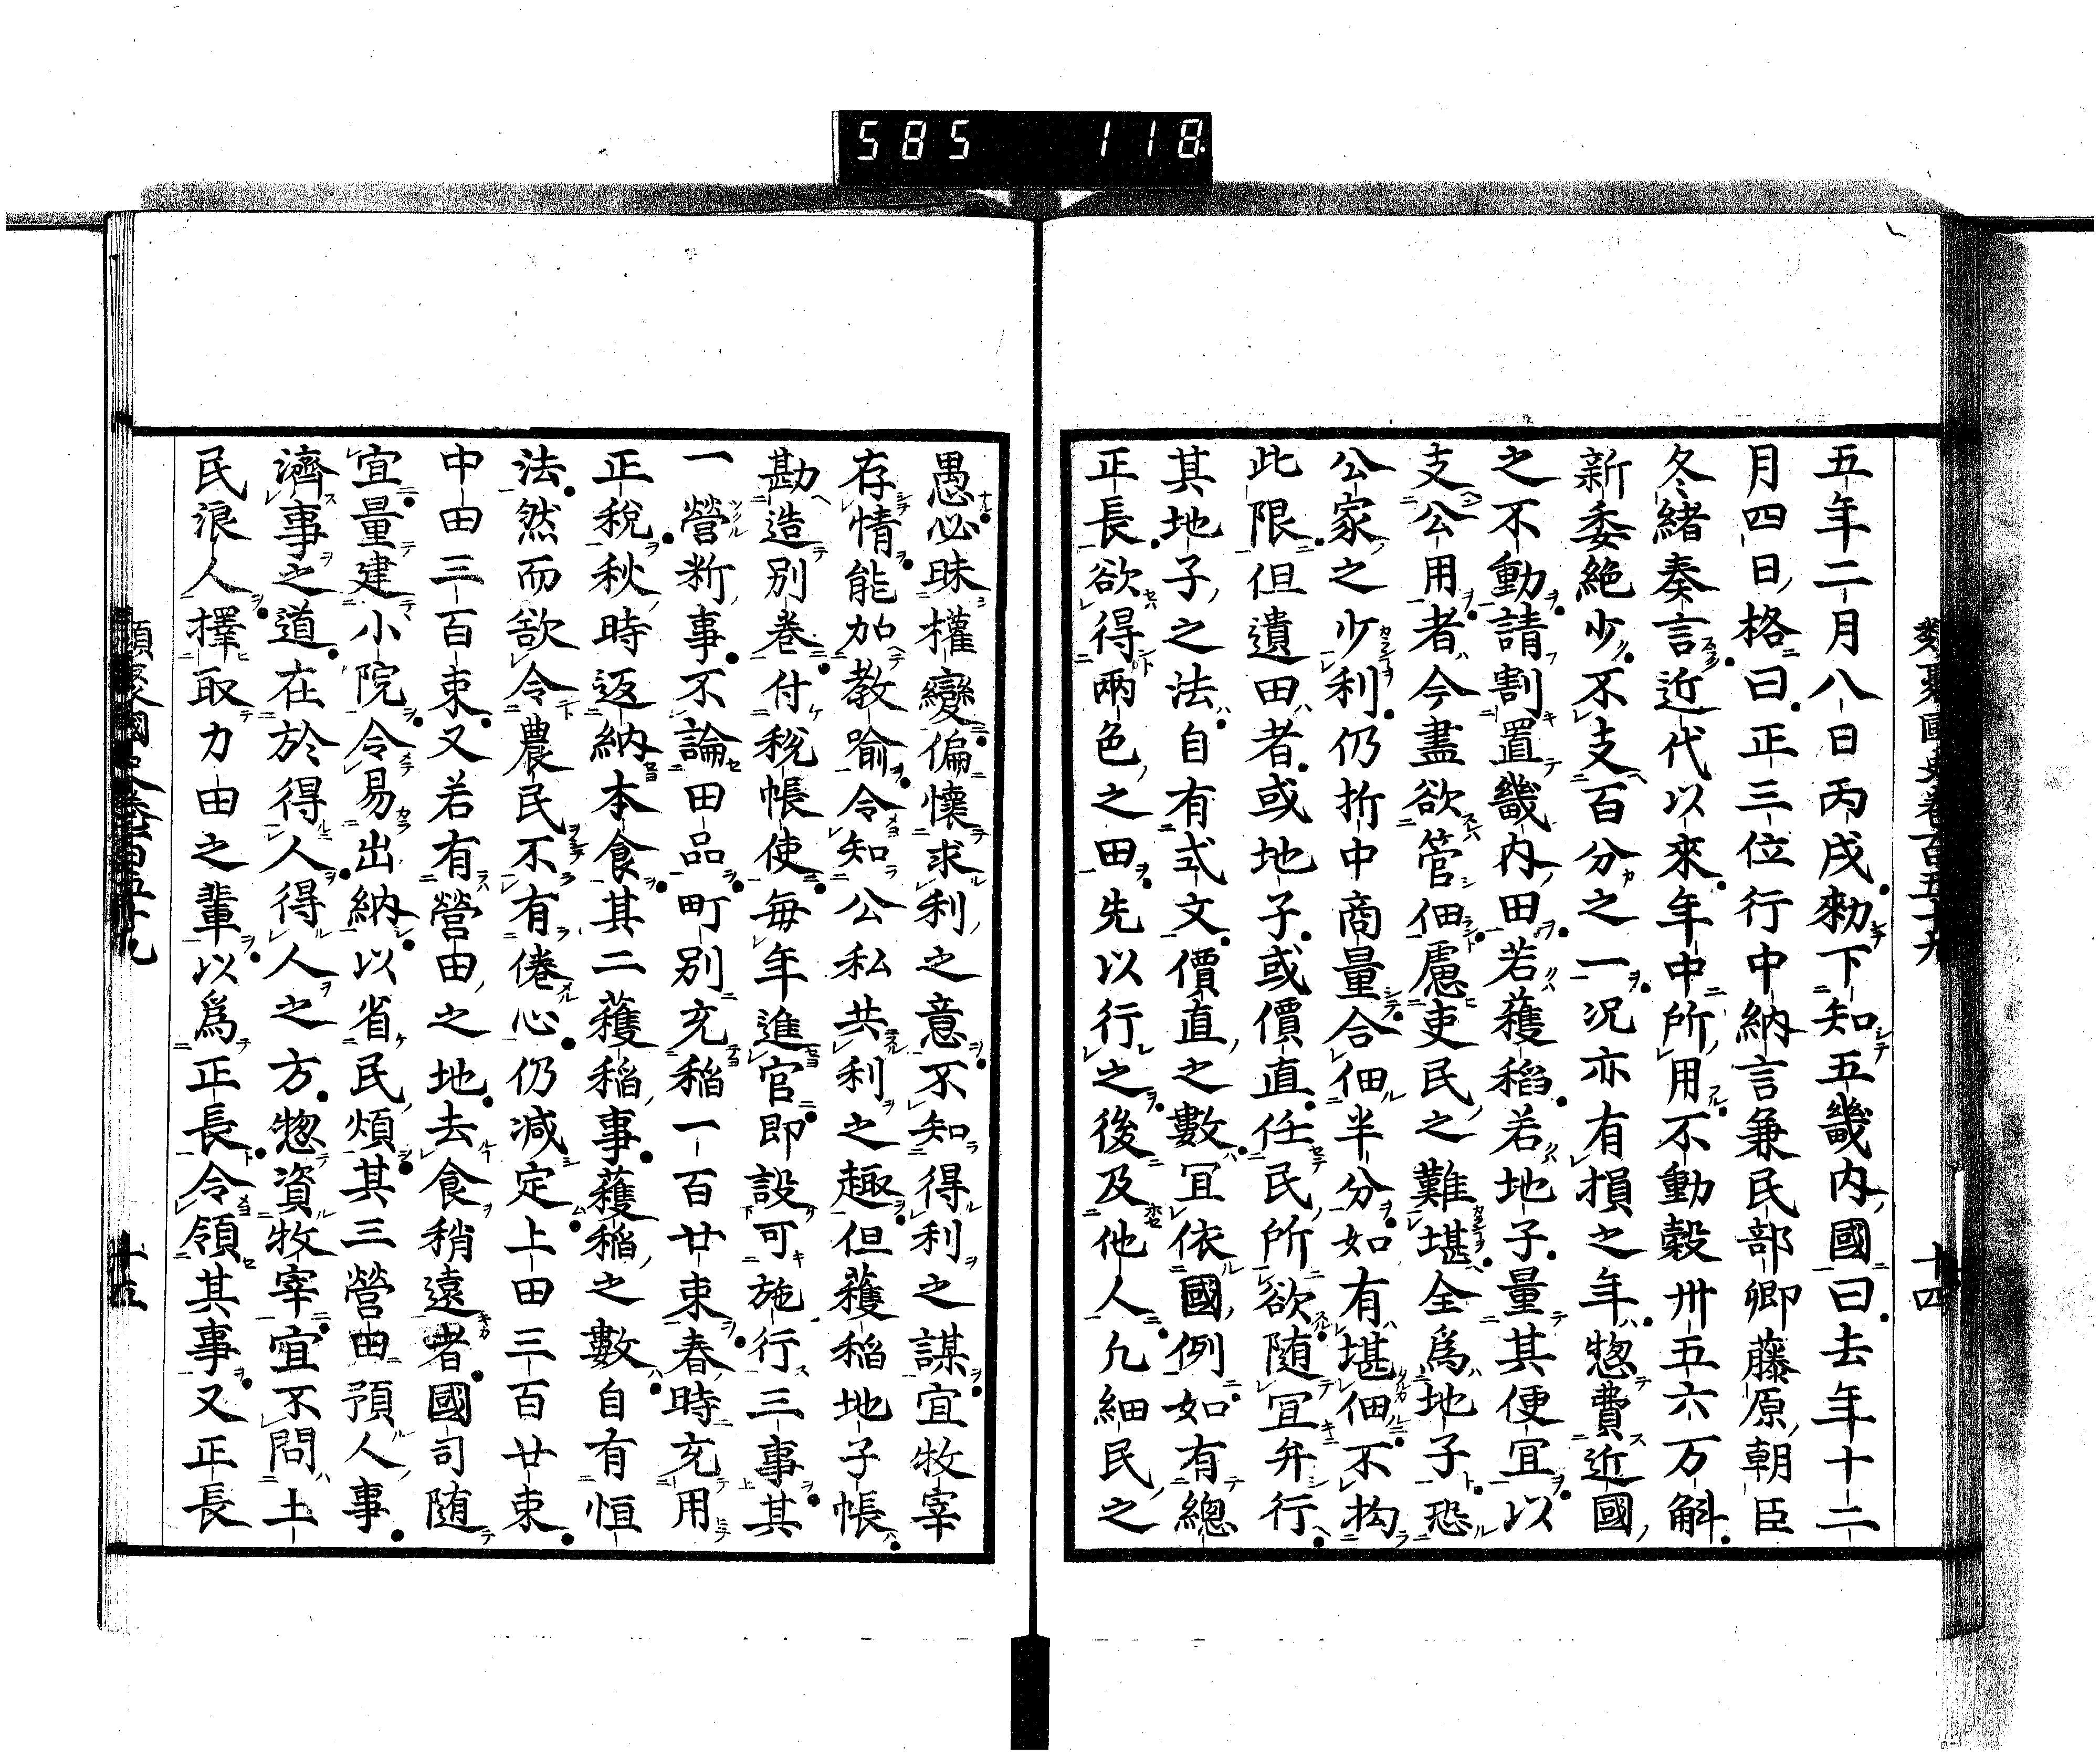 585 118
類聚國史卷百五十九 十四
五年二月八日丙戌勅下知五畿內國曰去年十二
月四日格曰正三位行中納言兼民部卿藤原朝臣
冬緒奏言近代以來年中所用不動穀卅五六万斛
新委絶少不支百分之一况亦有損之年惣費近國
之不動請割置畿內田若穫稻若地子量其便宜以
支公用者今盡欲管佃慮吏民之難堪全爲地子恐
公家之少利仍折中商量合佃半分如有堪佃不拘
此限但遺田者或地子或價直任民所欲随冝弁行
其地子之法自有式文價直之數冝依國例如有總
正長欲得兩色之田先以行之後及他人凢細民之
愚必昧權變偏懷求利之意不知得利之謀宜牧宰
存情能加教喻令知公私共利之趣但穫稻地子帳
勘造別卷付稅帳使每年進官即設可施行三事其
一營新事不論田品町別充稻一百廿束春時充用
正稅秋時返納本倉其二穫稻事穫稻之數自有恒
法然而欲令農民不有倦心仍減定上田三百廿束
中田三百束又若有營田之地去倉稍遠者國司随
宜量建小院令易出納以省民煩其三營田預人事
濟事之道在於得人得人之方惣資牧宰宜不問土
民浪人擇取力田之輩以爲正長令領其事又正長
類聚國史卷百五十九 十五